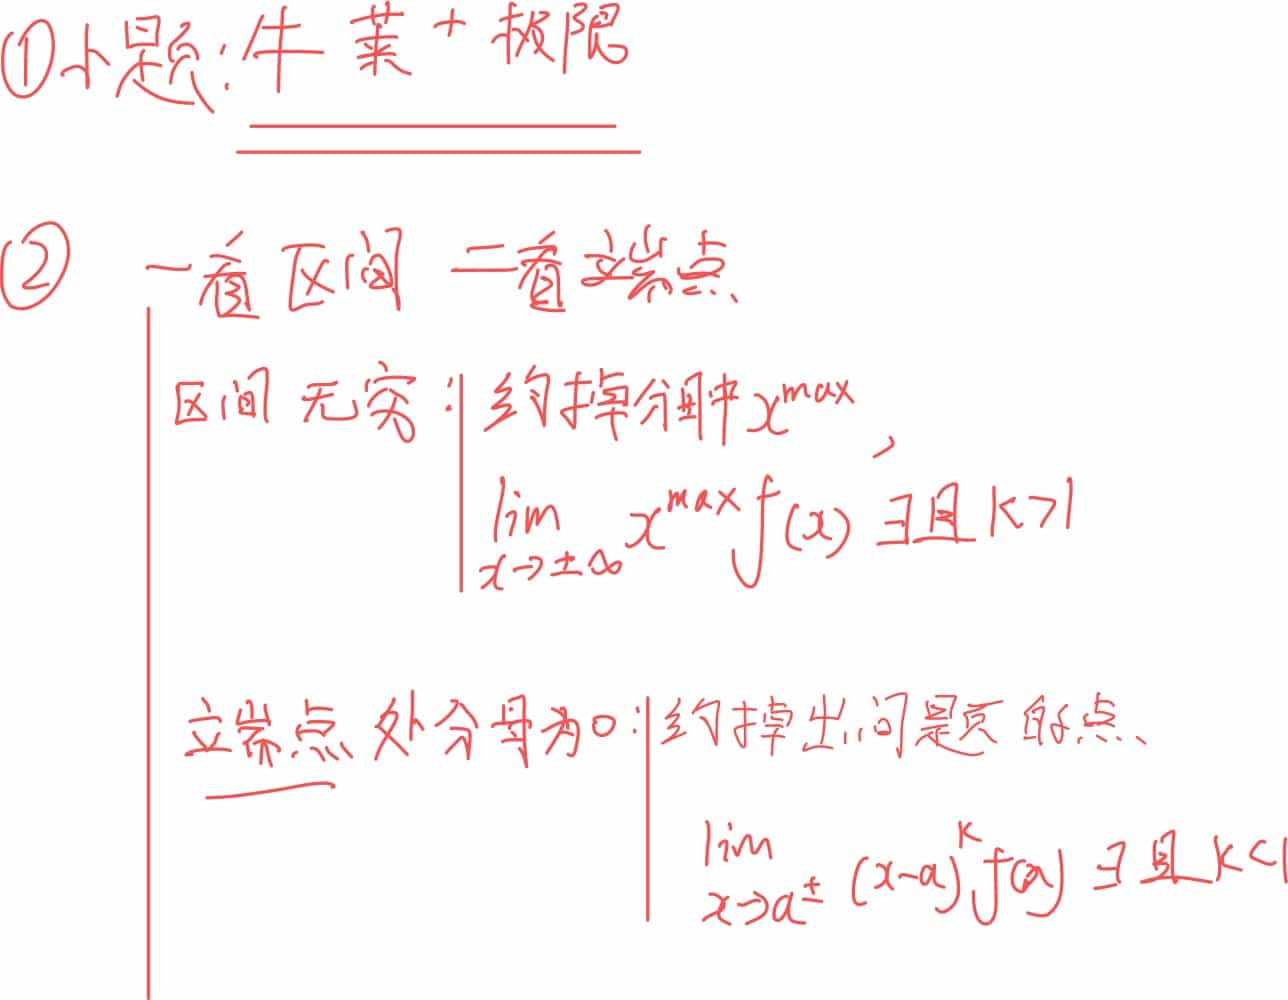 ①小题:牛莱+极限
② 一看区间 二看端点
区间无穷: 约掉分母中 x^max,
lim x→±∞ x^max f(x) ∃且 k>1
端点处分母为0: 约掉出问题的点
lim x→a± (x-a)^k f(x) ∃且 k<1